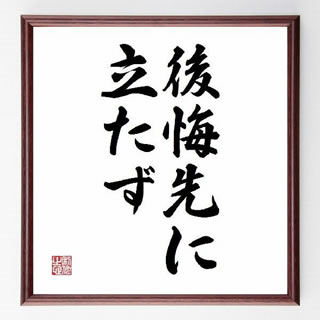 後悔先に
立たず